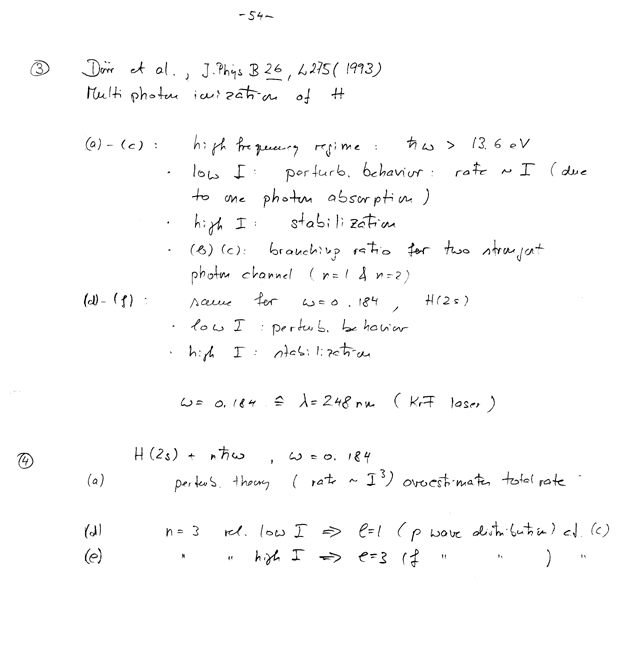 -54-
③ Dörr et al., J. Phys B 26, L275 (1993)
Multi photon ionization of H
(a)-(c): high frequency regime: ħω > 13.6 eV
· low I: perturb. behavior: rate ~ I (due
to one photon absorption)
· high I: stabilization
· (b)(c): branching ratio for two strongest
photon channel (n=1 & n=2)
(d)-(f): same for ω=0.184, H(2s)
· low I: perturb. behavior
· high I: stabilization
ω=0.184 ≙ λ=248 nm (KrF laser)
④ H(2s) + nħω, ω=0.184
(a) perturb. theory (rate ~ I³) overestimates total rate
(d) n=3 rel. low I ⇒ ℓ=1 (p wave distribution) cf. (c)
(e) " " high I ⇒ ℓ=3 (f " " ) "